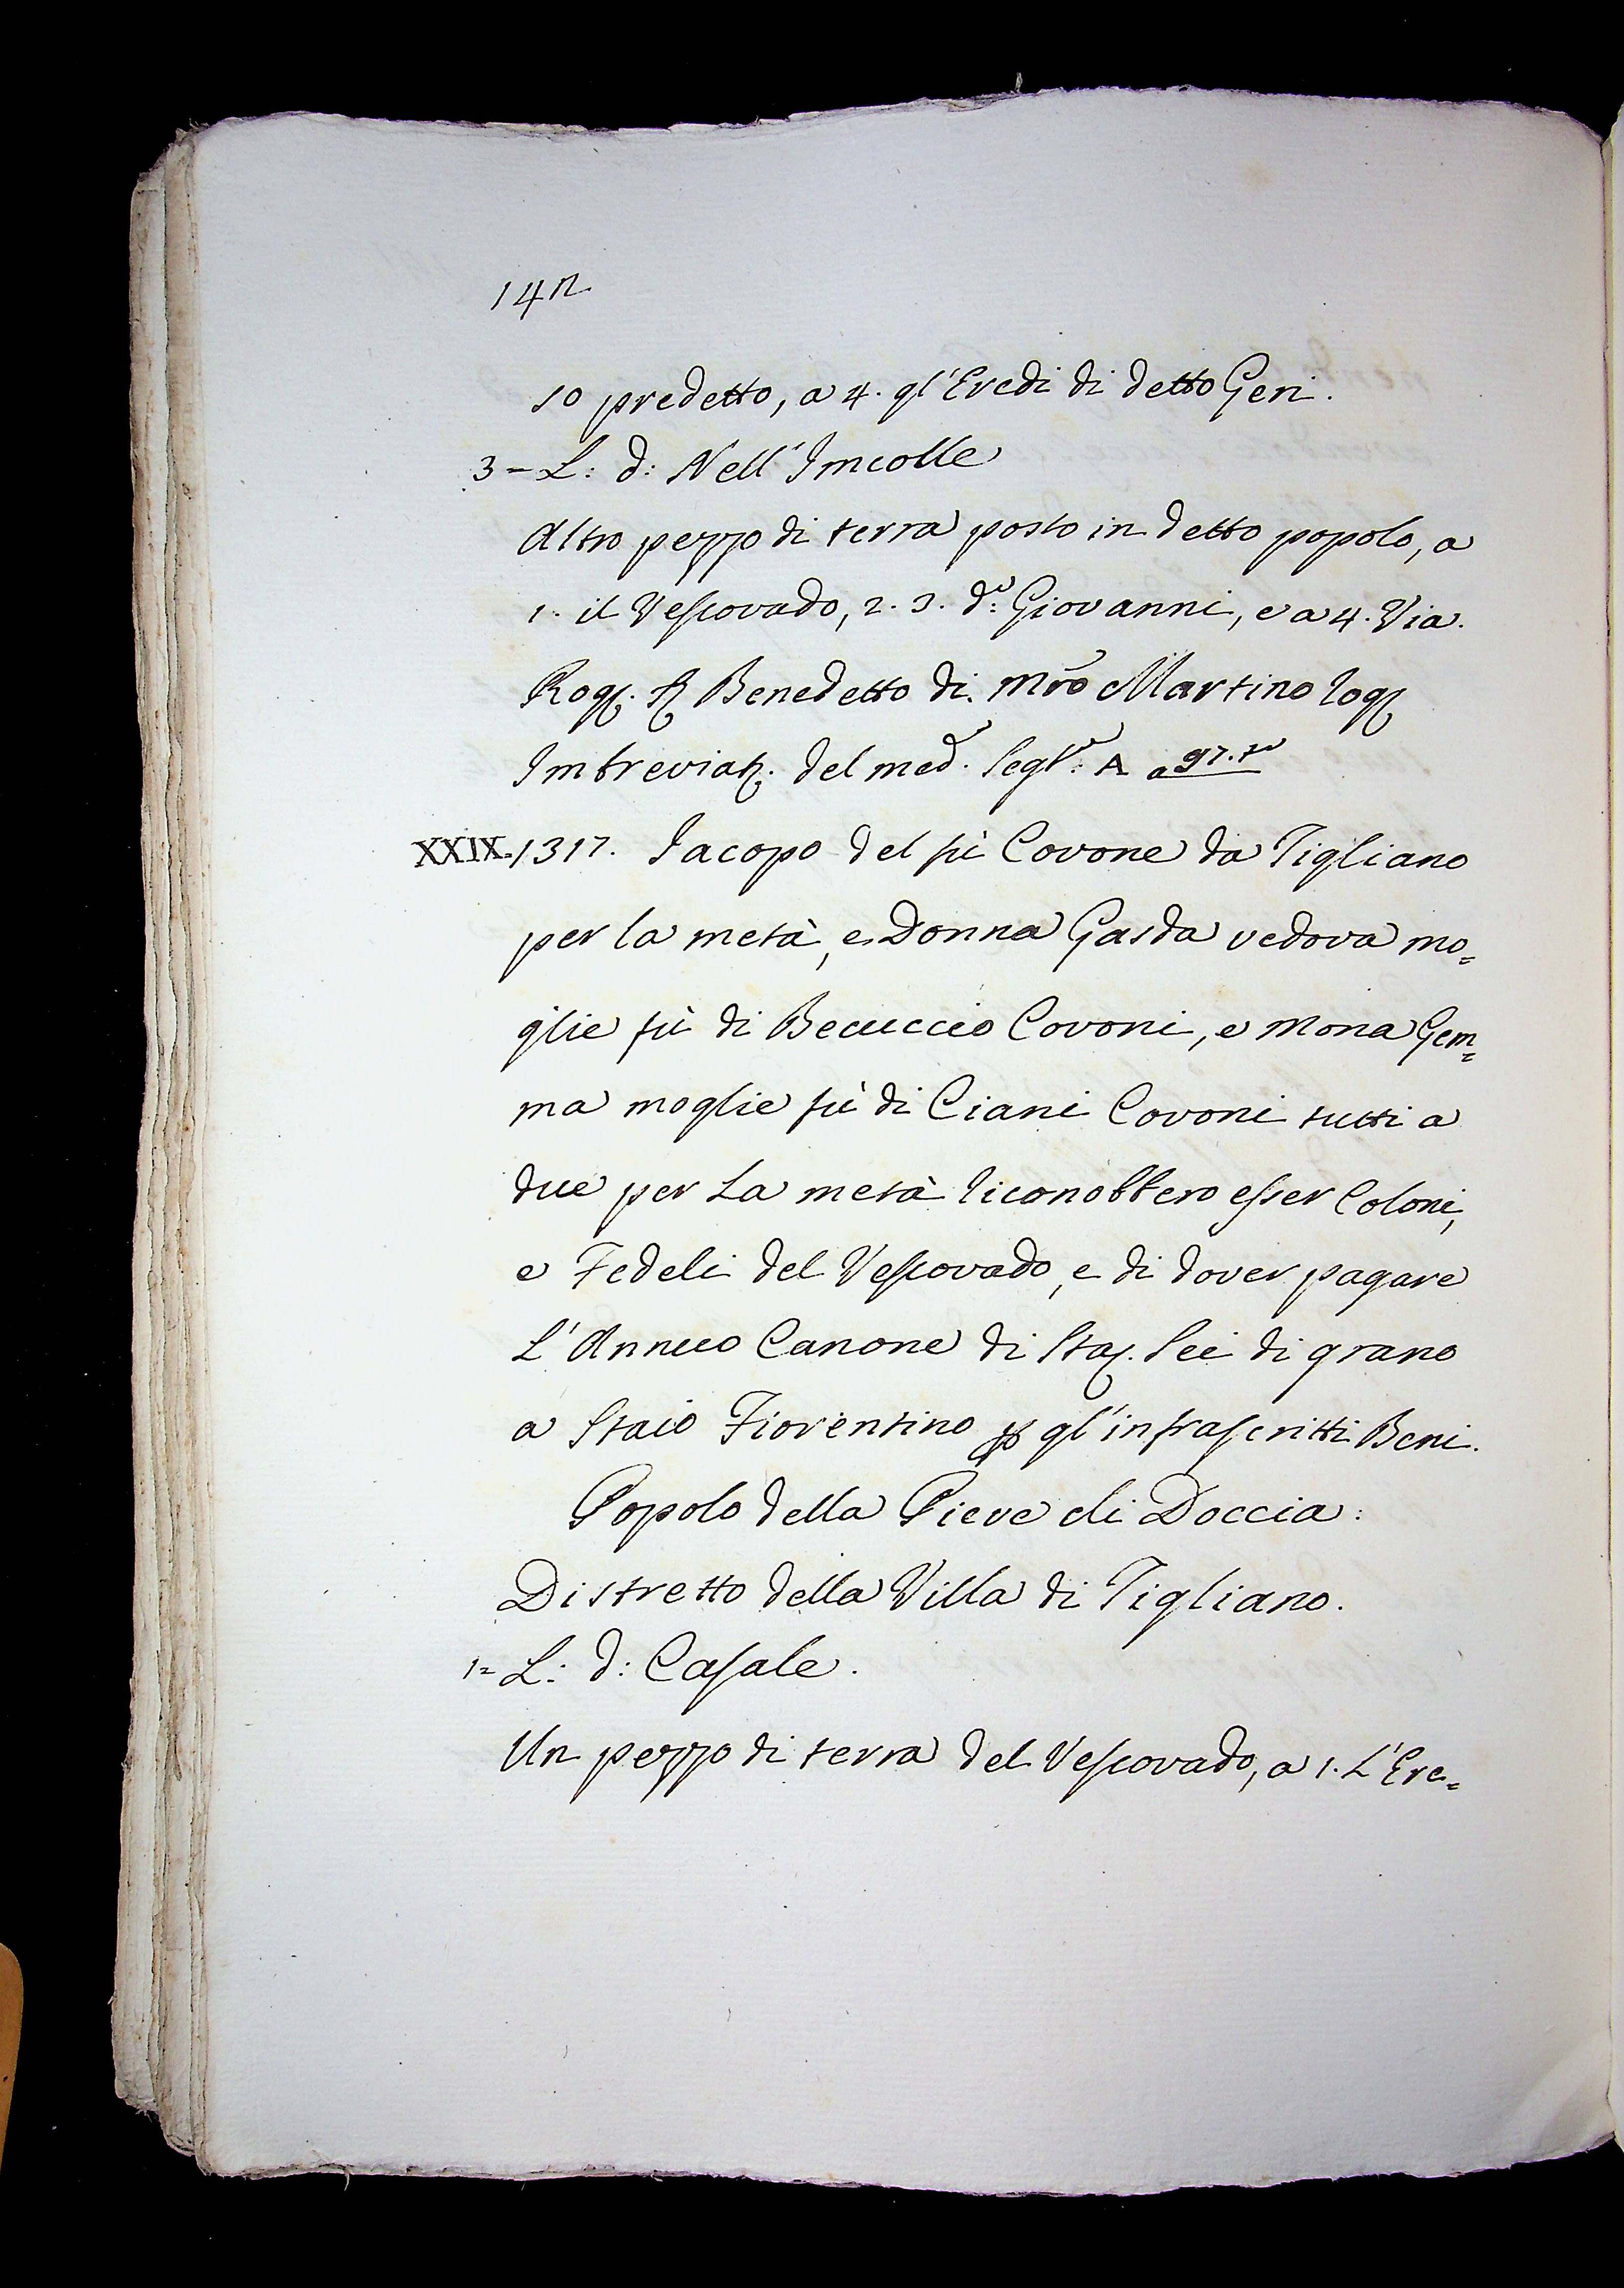 14n
so predetto, a 4. gl'Eredi di detto Geri.
3 = L: d: Nell'Imcolle
Altro pezzo di terra posto in detto popolo, a
1. il Vescovado, 2. 3. do: Giovanni, e a 4. Via.
Rog. Benedetto di mro Martino Rog
Imbreviaz. del med. Segto: A a 97. to
XXIX. 1317. Iacopo del fù Covone da Tigliano
per la metà, e Donna Gasda vedova mo=
glie fù di Becuccio Covoni, e Mona Gem=
ma moglie fù di Ciani Covoni tutti a
due per La metà riconobbero esser Coloni,
e Fedeli del Vescovado, e di dover pagare
L'Annuo Canone di Sta. Sei di grano
a Staio Fiorentino p gl'infrascritti Beni.
Popolo della Pieve di Doccia:
Distretto della Villa di Tigliano.
1 = L: d: Casale.
Un pezzo di terra del Vescovado, a 1. L'Ere=